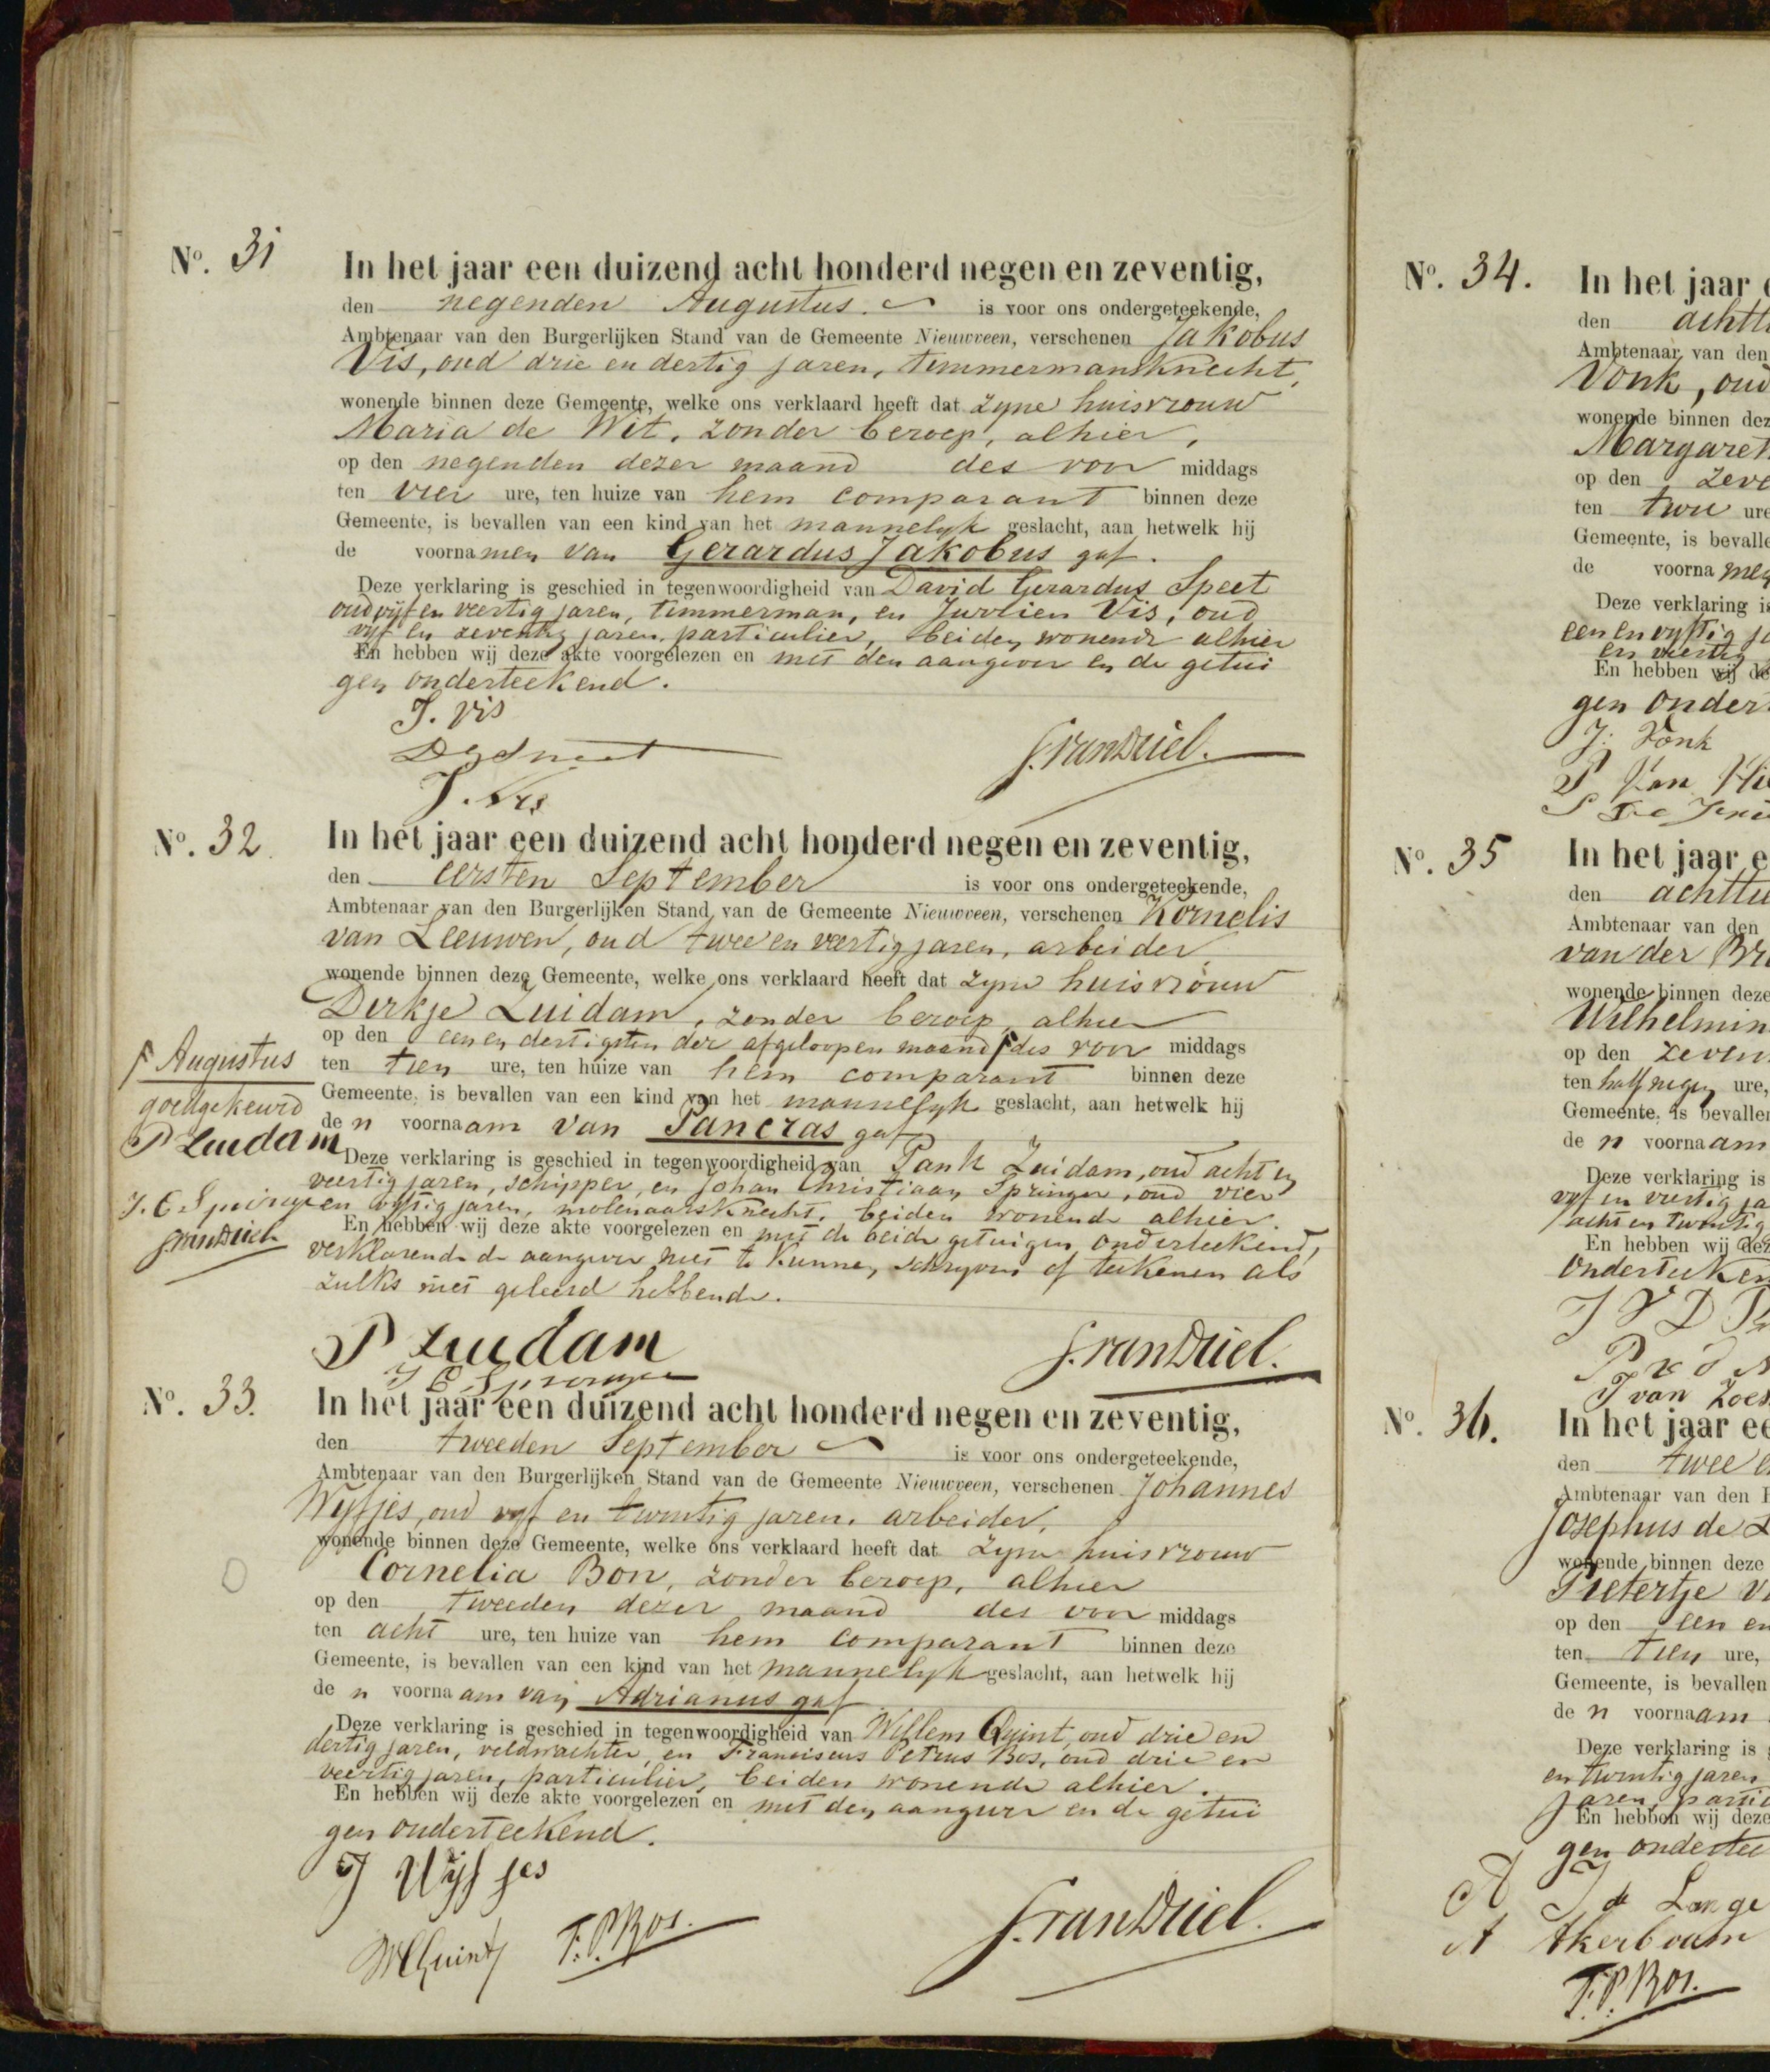 No. 31
In het jaar een duizend acht honderd negen en zeventig,
den negenden Augustus. is voor ons ondergeteekende,
Ambtenaar van den Burgerlijken Stand van de Gemeente Nieuwveen, verschenen Jakobus
Vis, oud drie en dertig jaren, timmermansknecht,
wonende binnen deze Gemeente, welke ons verklaard heeft dat zyne huisvrouw
Maria de Wit, zonder beroep, alhier,
op den negenden dezer maand des voor middags
ten vier ure, ten huize van hem comparant binnen deze
Gemeente, is bevallen van een kind van het mannelyk geslacht, aan hetwelk hij
de voornamen van Gerardus Jakobus gaf.
Deze verklaring is geschied in tegenwoordigheid van David Gerardus Speet
oud vyf en veertig jaren, timmerman, en Jurlien Vis, oud
vyf en zeventig jaren, particulier, beiden wonende alhier
En hebben wij deze akte voorgelezen en met den aangever en de getui
gen onderteekend.
J. Vis
J. Vis
J. van Driel.
No. 32
In het jaar een duizend acht honderd negen en zeventig,
den eersten September is voor ons ondergeteekende,
Ambtenaar van den Burgerlijken Stand van de Gemeente Nieuwveen, verschenen Kornelis
van Leeuwen, oud twee en veertig jaren, arbeider
wonende binnen deze Gemeente, welke ons verklaard heeft dat zyne huisvrouw
Derkje Zuidam, zonder beroep, alhier
op den een en dertigsten der afgeloopen maand des voor middags
ten tien ure, ten huize van hem comparant binnen deze
Gemeente, is bevallen van een kind van het mannelyk geslacht, aan hetwelk hij
den voornaam van Pancras gaf
Deze verklaring is geschied in tegenwoordigheid van Pank Zuidam, oud acht en
veertig jaren, schipper, en Johan Christiaan Springer, oud vier
en vyftig jaren, molenaarsknecht, beiden wonende alhier.
En hebben wij deze akte voorgelezen en met de beide getuigen onderteekend,
verklarende de aangever niet te kunnen schryven of teekenen als
zulks niet geleerd hebbende.
Augustus
goedgekeurd
P Zuidam
J. C. Springer
J. van Driel
P Zuidam
J C Springer
J. van Driel.
No. 33.
In het jaar een duizend acht honderd negen en zeventig,
den tweeden September is voor ons ondergeteekende,
Ambtenaar van den Burgerlijken Stand van de Gemeente Nieuwveen, verschenen Johannes
Wyfjes, oud vyf en twintig jaren, arbeider,
wonende binnen deze Gemeente, welke ons verklaard heeft dat zyne huisvrouw
Cornelia Bon, zonder beroep, alhier
op den tweeden dezer maand des voor middags
ten acht ure, ten huize van hem comparant binnen deze
Gemeente, is bevallen van een kind van het mannelyk geslacht, aan hetwelk hij
den voornaam van Adrianus gaf
Deze verklaring is geschied in tegenwoordigheid van Willem Quint, oud drie en
dertig jaren, veldwachter, en Franciscus Petrus Bos, oud drie en
veertig jaren, particulier, beiden wonende alhier.
En hebben wij deze akte voorgelezen en met den aangever en de getui
gen onderteekend.
J Wijfjes
W Quint
F. P. Bos.
J. van Driel.
No. 34.
In het jaar
den achtt
Ambtenaar van den
Vonk, oud
wonende binnen dez
Margaret
op den zeve
ten twee ure
Gemeente, is bevalle
de voornamen
Deze verklaring is
een en vyftig ja
en veertig
En hebben wij de
gen onder
J. Vonk
P Van
No. 35
In het jaar e
den achttie
Ambtenaar van den
van der Br
wonende binnen deze
Wilhelmin
op den zeven
ten half negen ure,
Gemeente, is bevallen
den voornaam
Deze verklaring is
vyf en veertig ja
acht en twintig
En hebben wij dez
onderteeken
J van Zoes
No. 36.
In het jaar ee
den twee e
Ambtenaar van den B
Josephus de L
wonende binnen deze
Pietertje v
op den een en
ten tien ure,
Gemeente, is bevallen
den voornaam
Deze verklaring is
en twintig jaren
jaren, partic
En hebben wij deze
gen ondertee
J de Lange
A Akerboom
F. P. Bos.